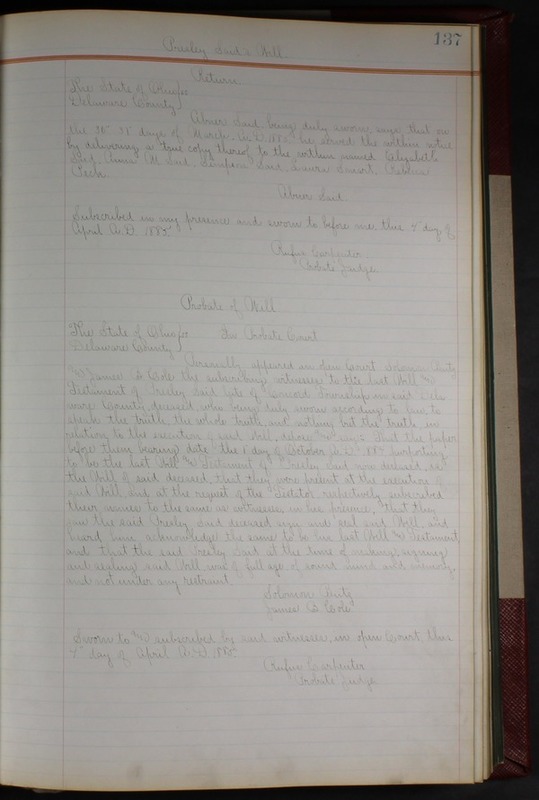 137
Presley Said's Will
Return
The State of Ohio ss
Delaware County
Abner Said being duly sworn, says that on
the 30" 31" days of March A.D. 1885, he served the within notice
by delivering a true copy thereof to the within named Elizabeth
Said, Anna M. Said, Simpson Said, Laura Smart, Rebecca
Peck.
Abner Said
Subscribed in my presence and sworn to before me, this 4" day of
April A.D. 1885.
Rufus Carpenter
Probate Judge
Probate of Will
The State of Ohio ss In Probate Court
Delaware County
Personally appeared in open Court Solomon
and James D. Cole the subscribing witnesses to the last Will and
Testament of Presley Said late of Concord Township in said Dela
ware County, deceased, who being duly sworn according to law, to
speak the truth, the whole truth, and nothing but the truth, in
relation to the execution of said Will, depose and say: That the paper
before them bearing date the 1" day of October A.D. purporting
to be the last Will and Testament of Presley Said now deceased, is
the Will of said deceased, that they were present at the execution of
said Will and at the request of the Testator respectively subscribed
their names to the same as witnesses in his presence, that they
saw the said Presley Said deceased sign and seal said Will, and
heard him acknowledge the same to be his last Will and Testament,
and that the said Presley Said at the time of making, signing
and sealing said Will was of full age of sound mind and memory,
and not under any restraint.
Solomon
James D. Cole
Sworn to and subscribed by said witnesses, in open Court, this
4" day of April A.D. 1885.
Rufus Carpenter
Probate Judge